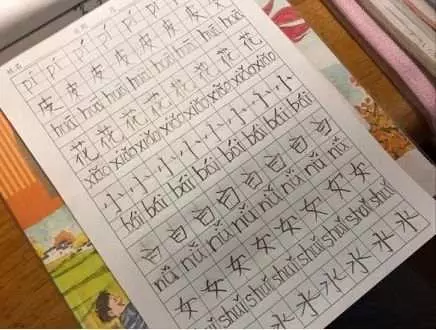 姓名
pí pí pí pí pí pí pí pí
皮 皮 皮 皮 皮 皮 皮 皮
huā huā huā huā huā huā huā huā
花 花 花 花 花 花 花 花
xiǎo xiǎo xiǎo xiǎo xiǎo xiǎo xiǎo xiǎo
小 小 小 小 小 小 小 小
bái bái bái bái bái bái bái bái
白 白 白 白 白 白 白 白
nǚ nǚ nǚ nǚ nǚ nǚ nǚ nǚ
女 女 女 女 女 女 女 女
shuǐ shuǐ shuǐ shuǐ shuǐ shuǐ shuǐ
水 水 水 水 水